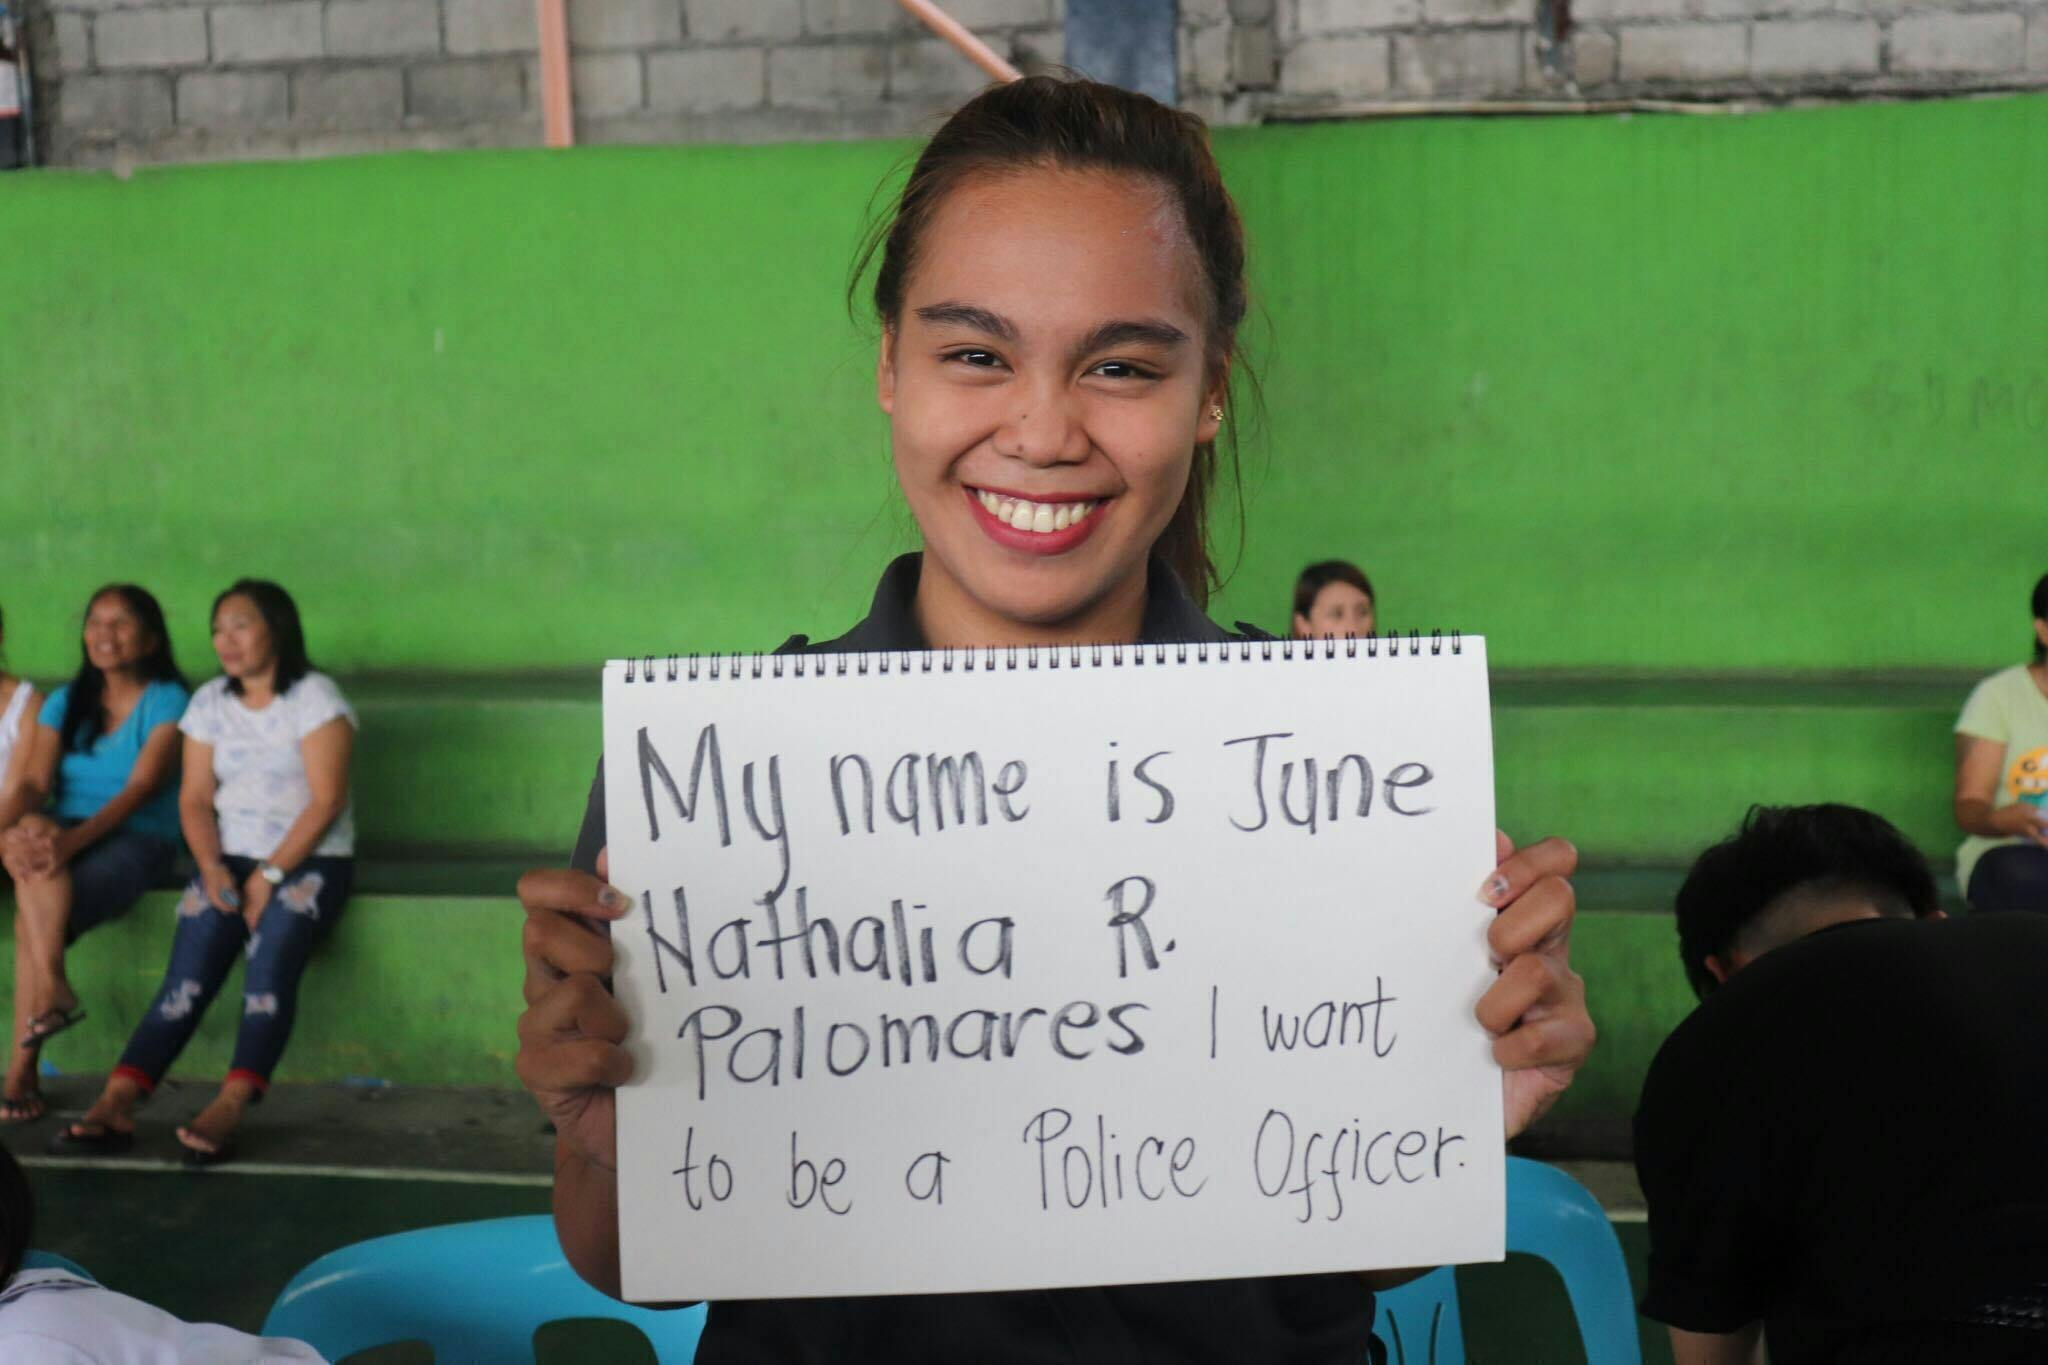 My name is June
Nathalia R.
Palomares I want
to be a Police Officer.